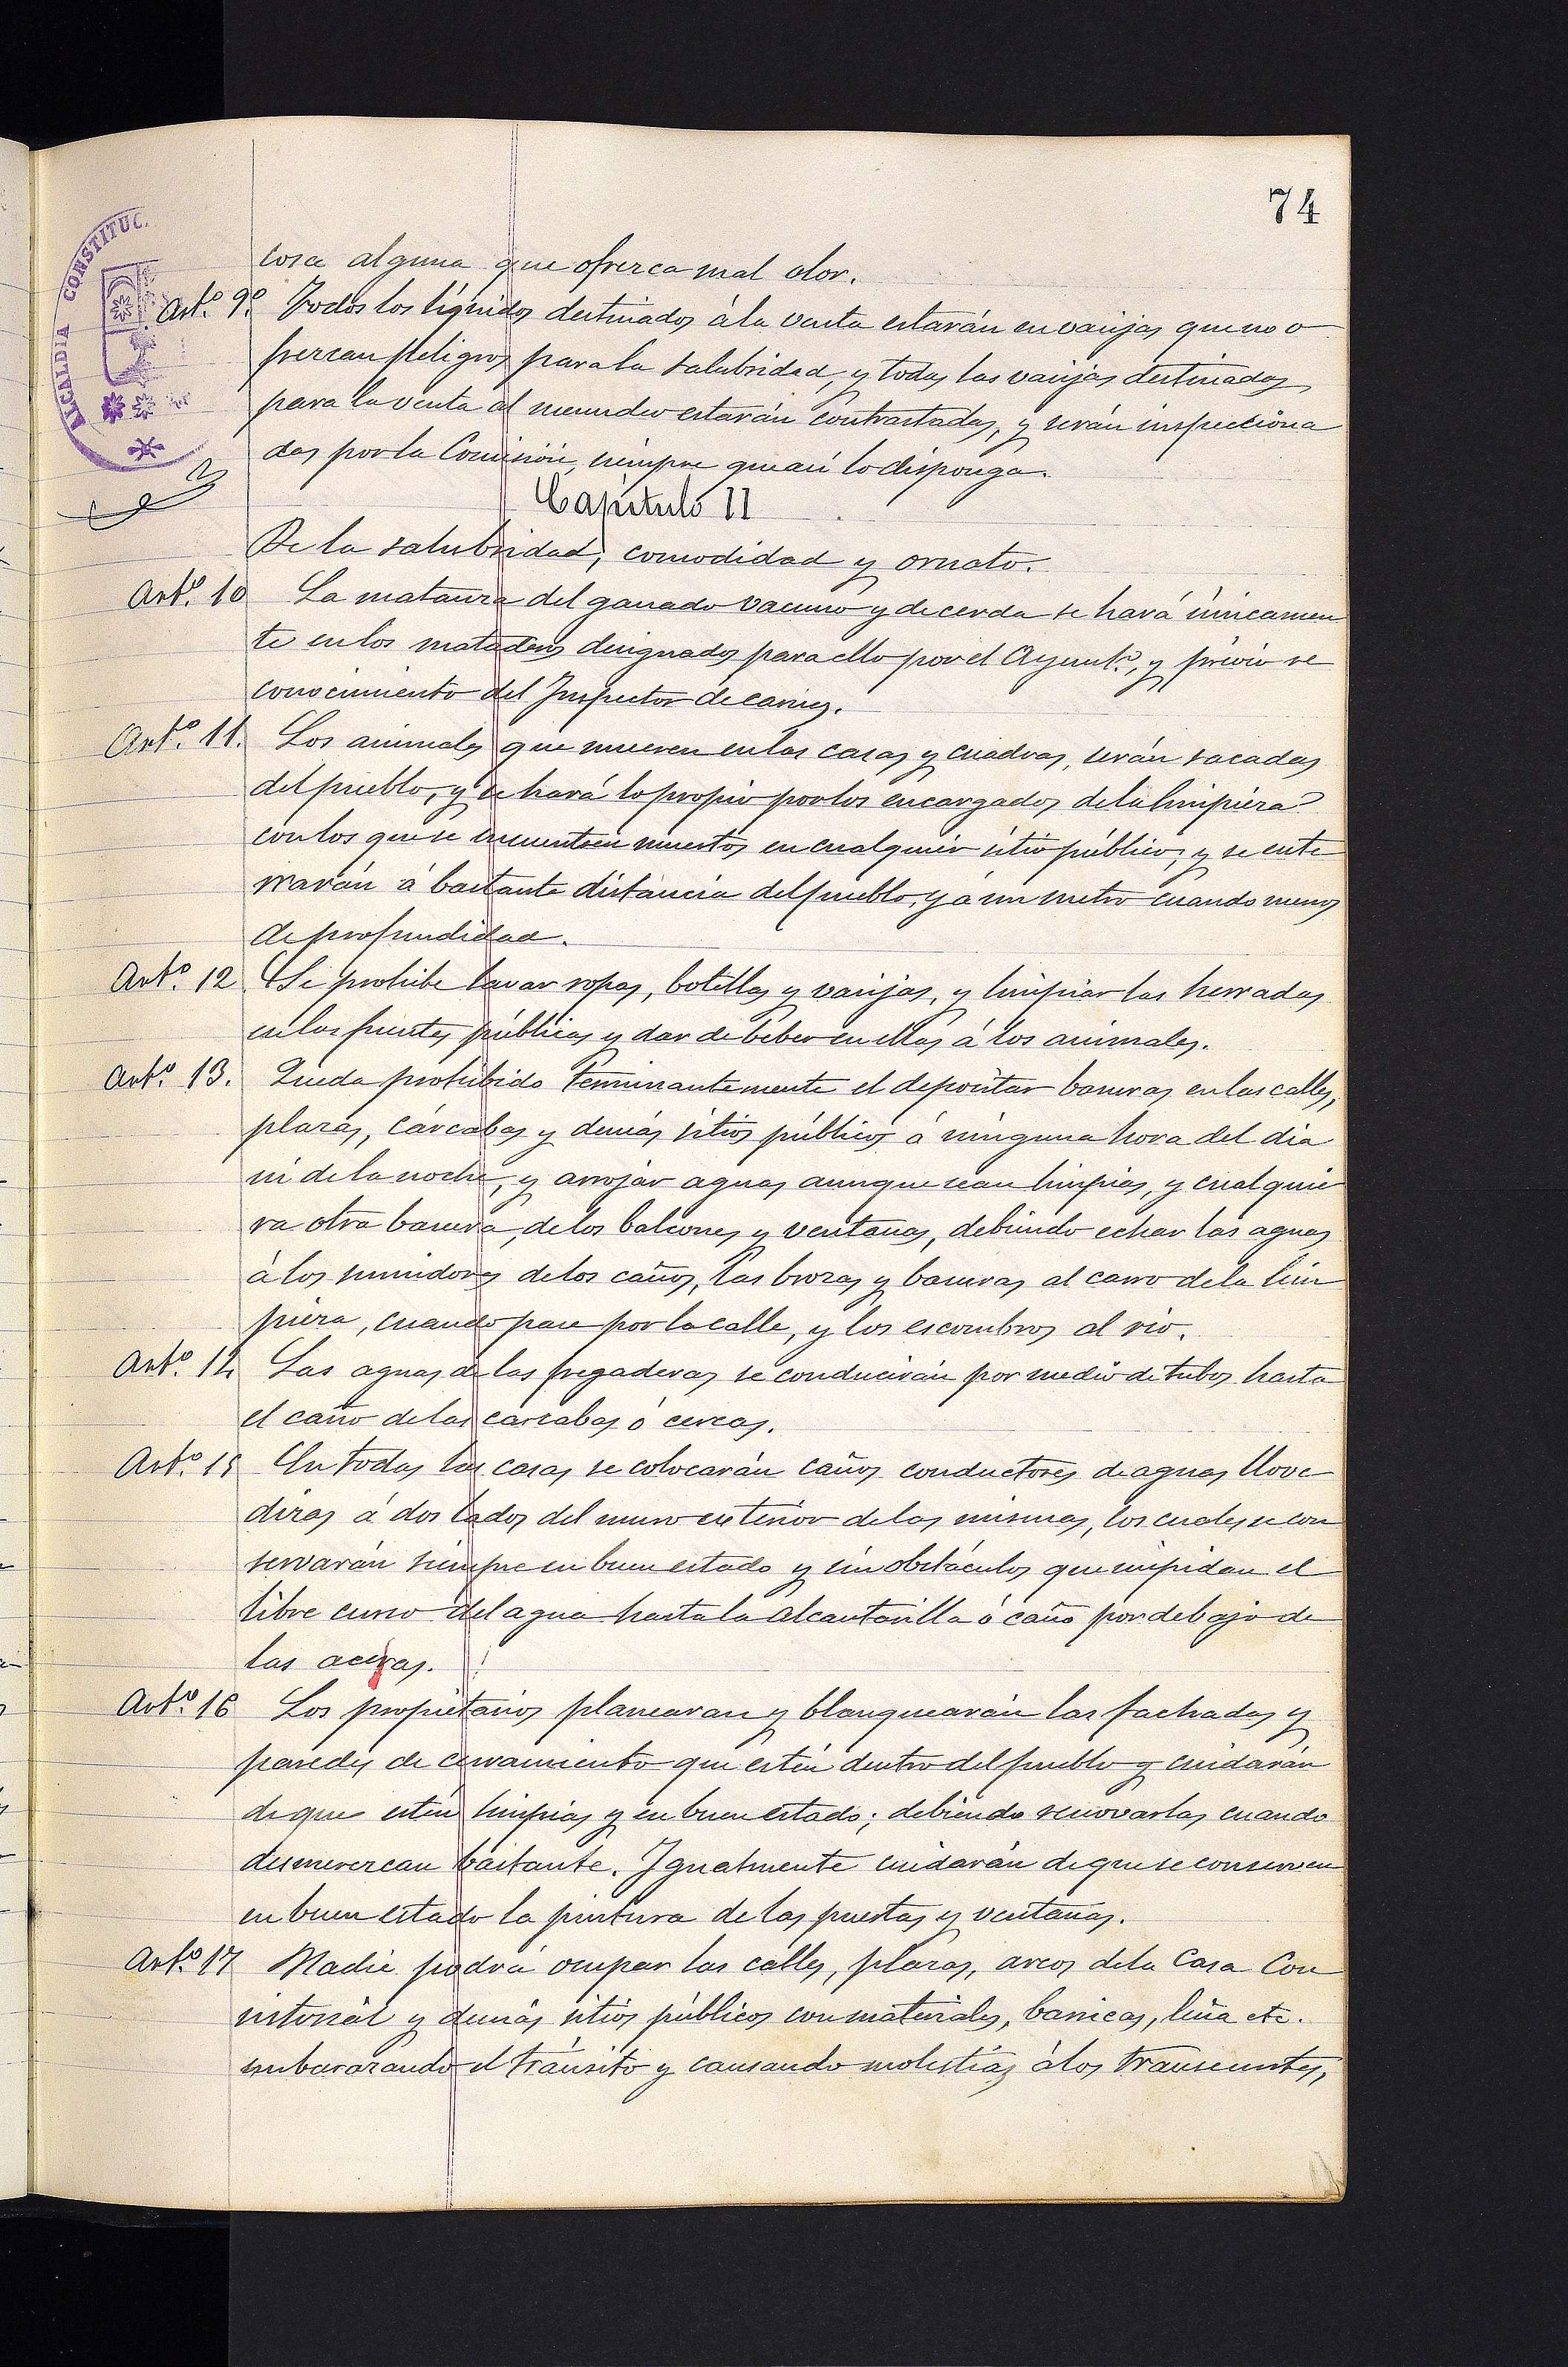 74
ALCALDIA CONSTITUC.
cosa alguna que ofrezca mal olor.
Artº. 9º. Todos los líquidos destinados á la venta estarán en vasijas que no o
frezcan peligros para la salubridad, y todas las vasijas destinadas
para la venta al menudeo estarán contrastadas, y serán inspecciona
das por la Comisión, siempre que así lo disponga.
Capítulo II
De la salubridad, comodidad y ornato.
Artº. 10 La matanza del ganado vacuno y de cerda se hará únicamen
te en los mataderos designados para ello por el Ayuntº., y prévio re
conocimiento del Inspector de carnes.
Artº. 11. Los animales que mueren en las casas y cuadras, serán sacados
del pueblo, y se hará lo propio por los encargados de la limpieza
con los que se encuentren muertos en cualquier sitio público, y se ente
rrarán á bastante distancia del pueblo, y á un metro cuando menos
de profundidad.
Artº. 12 Se prohibe lavar ropas, botillas y vasijas, y limpiar las herradas
en las fuentes públicas y dar de beber en ellas á los animales.
Artº. 13. Queda prohibido terminantemente el depositar basuras en las calles,
plazas, cárcabas y demás sitios públicos á ninguna hora del dia
ni de la noche, y arrojar aguas aunque sean limpias, y cualquie
ra otra basura, de los balcones y ventanas, debiendo echar las aguas
á los sumidores de los caños, las brozas y basuras al carro de la lim
pieza, cuando pase por la calle, y los escombros al rio.
Artº. 14 Las aguas de las fregaderas se conducirán por medio de tubos hasta
el caño de las carcabas ó cercas.
Artº. 15 En todas las casas se colocarán caños conductores de aguas llove
dizas á dos lados del muro exterior de las mismas, los cuales se con
servarán siempre en buen estado y sin obstáculos que impidan el
libre curso del agua hasta la alcantarilla ó caño por debajo de
las aceras.
Artº. 16 Los propietarios planearan y blanquearán las fachadas y
paredes de cerramiento que estén dentro del pueblo y cuidarán
de que estén limpias y en buen estado; debiendo renovarlas cuando
desmerezcan bastante. Igualmente cuidarán de que se conserven
en buen estado la pintura de las puertas y ventanas.
Artº. 17 Nadie podrá ocupar las calles, plazas, arcos de la Casa Con
sistorial y demás sitios públicos con materiales, barricas, leña etc.
embarazando el tránsito y causando molestias á los transeuntes,